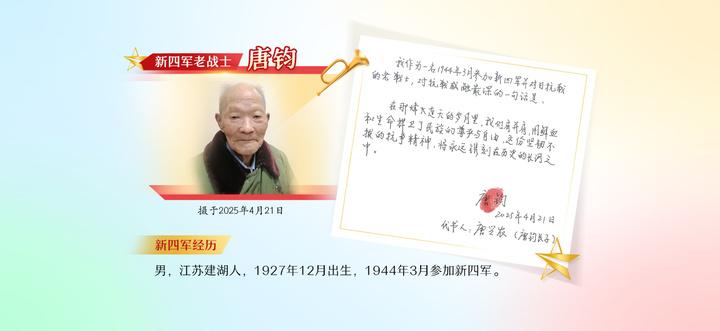 新四军老战士 唐钧
摄于2025年4月21日
我作为一名1944年3月参加新四军并对日抗战
的老战士，对抗战感触最深的一句话是：
在那烽火连天的岁月里，我们肩并肩，用鲜血
和生命捍卫了民族的尊严与自由，这份坚韧不
拔的抗争精神，将永远镌刻在历史的长河之
中。
唐钧
2025年4月21日
代书人：唐兰农（唐钧长子）
新四军经历
男，江苏建湖人，1927年12月出生，1944年3月参加新四军。